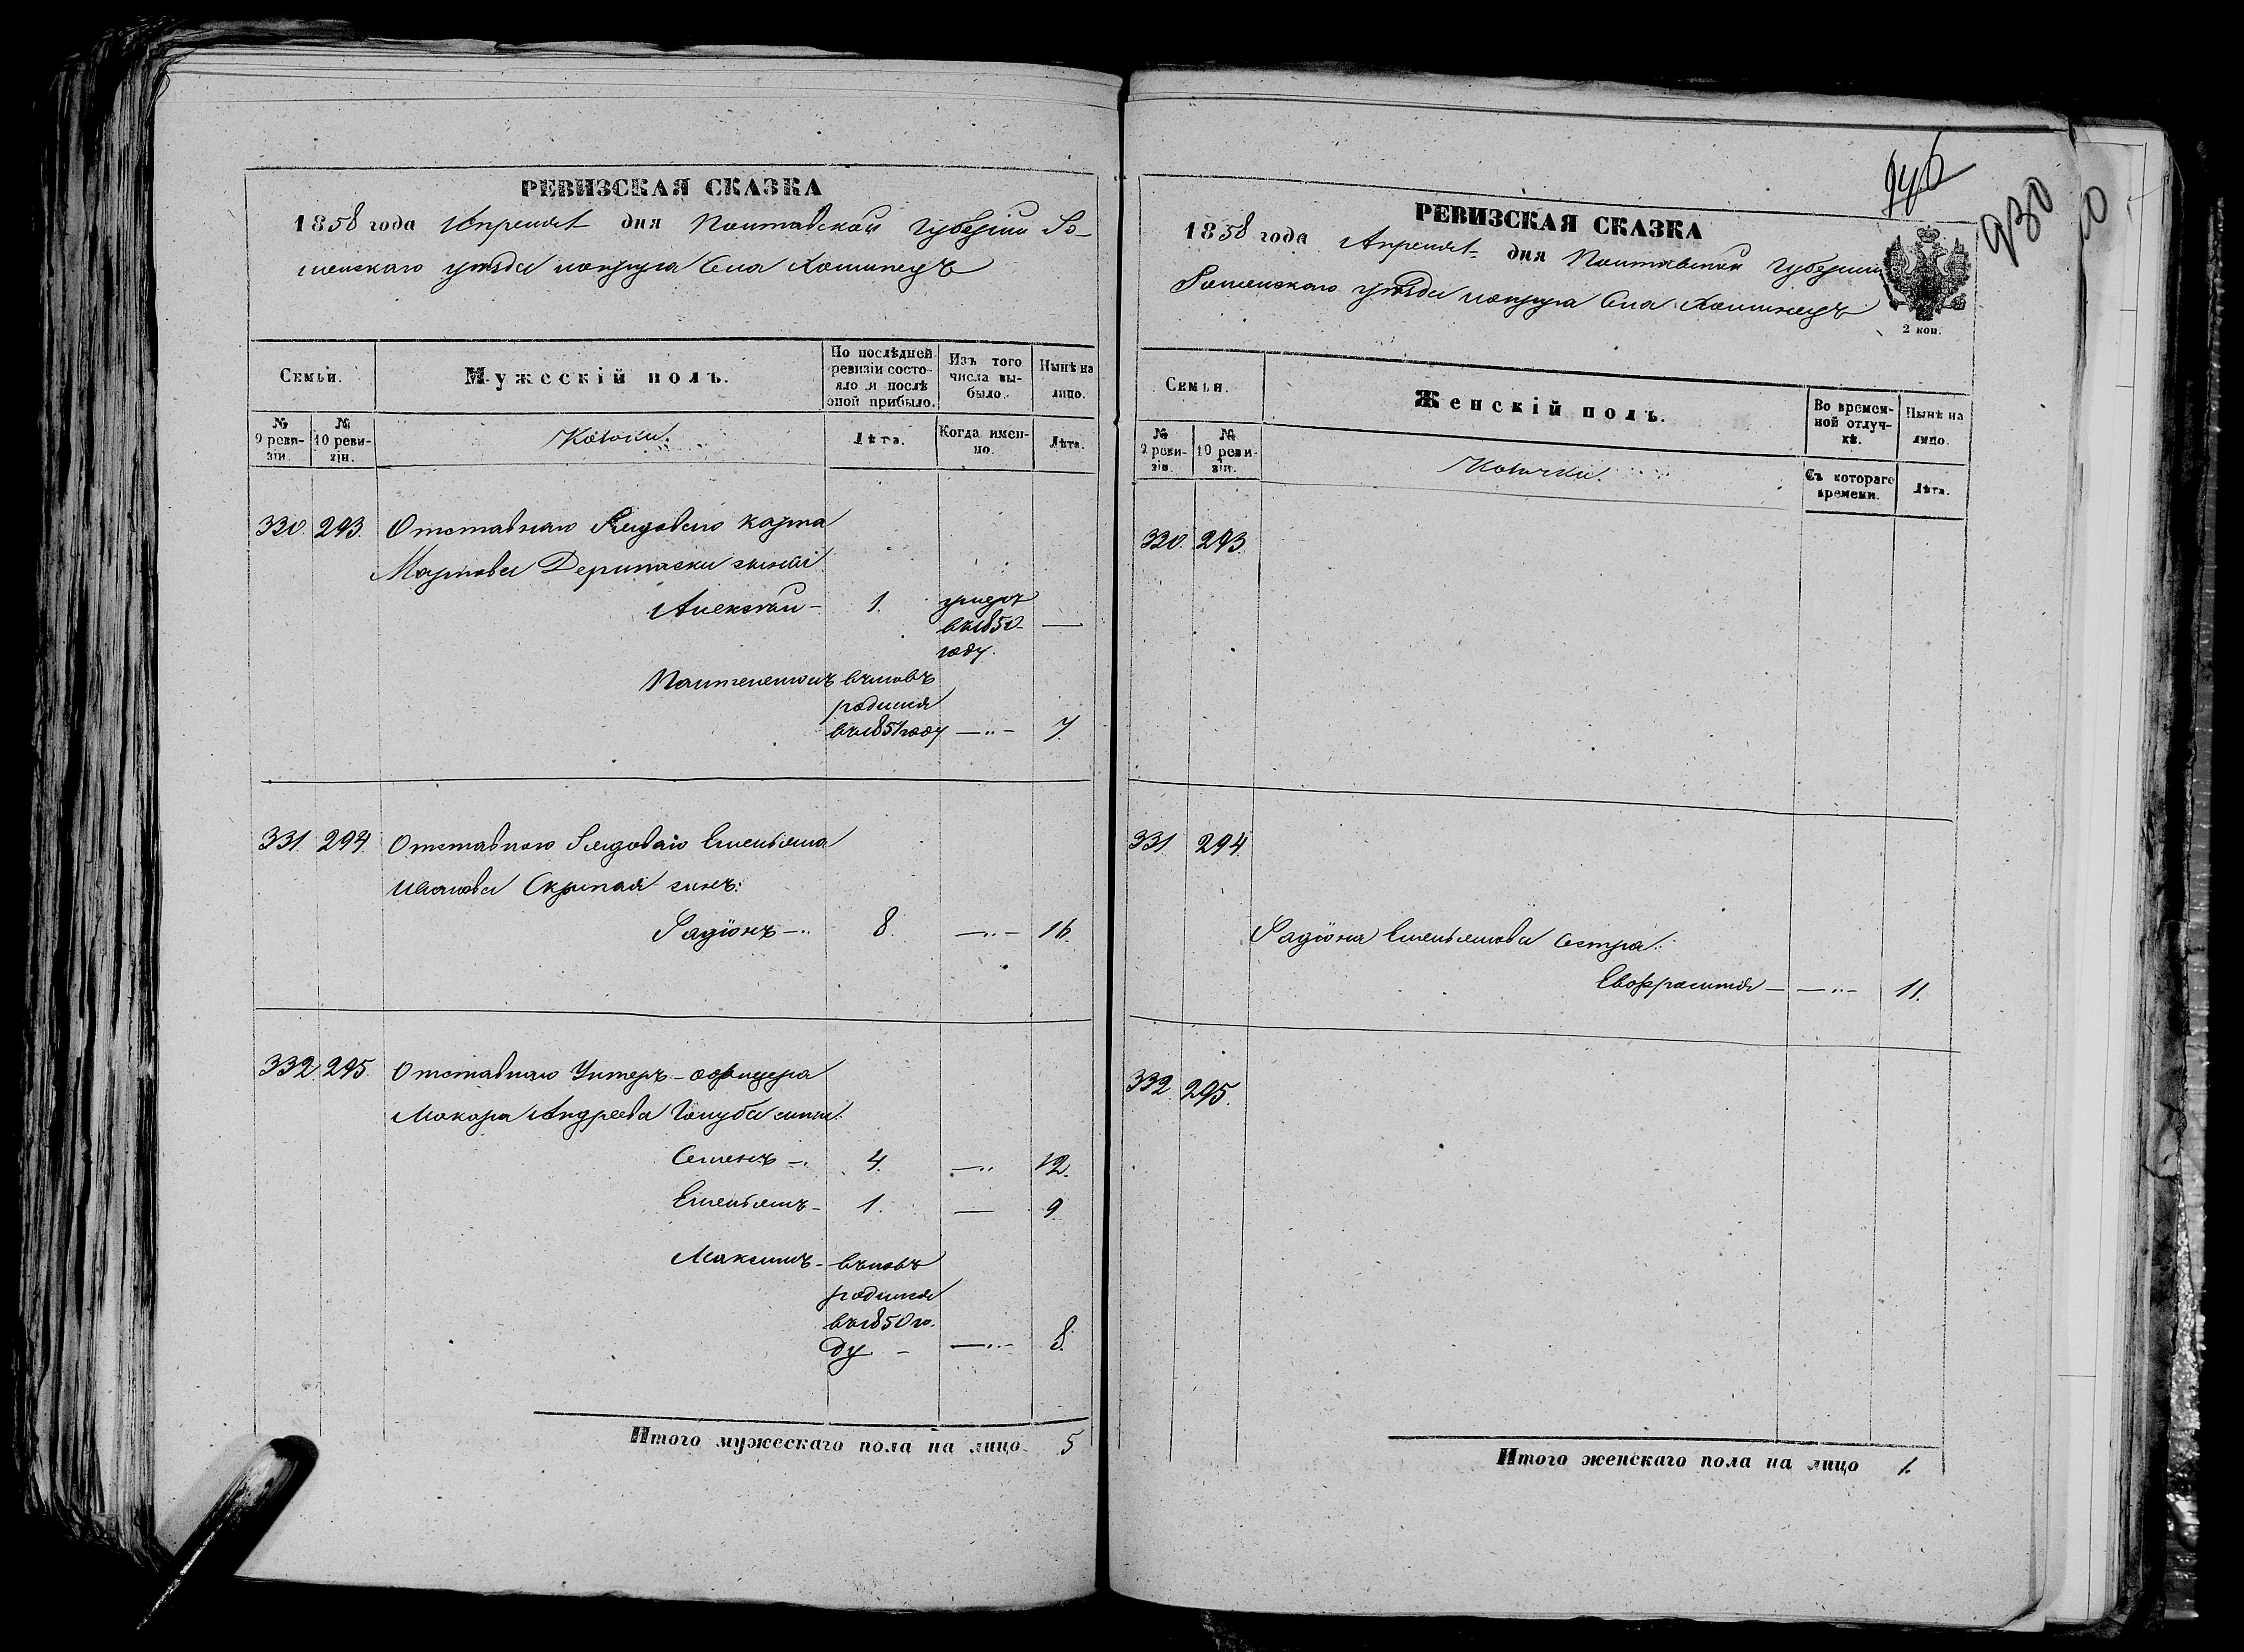 РЕВИЗСКАЯ СКАЗКА
1858 года Апреля дня Полтавской Губерніи Ро-
менскаго уѣзда округа Села Хоминецъ
Семьи.
Мужескій полъ.
По послѣдней ревизіи состояло и послѣ оной прибыло.
Изъ того числа выбыло.
Нынѣ на лицо.
№ 9 ревизіи.
№ 10 ревизіи.
Лѣта.
Когда именно.
Лѣта.
330. 293. Отставнаго Рядоваго Карпа
Дерипаски сыновья
Алексѣй – 1. умеръ
въ 1850 –
году.
Пантелемонъ вновь
родился
въ 1851 году – 7.
331. 294. Отставнаго Рядоваго Емельяна
Иванова сынъ:
Радіонъ – 8. – 16.
332. 295. Отставнаго Унтеръ-офицера
Макара Андреева Голуба сыны:
Семенъ – 4. – 12.
Емельянъ – 1. – 9.
Максимъ – вновь
родился
въ 1850 го-
ду – – 8.
Итого мужескаго пола на лицо 5
930
РЕВИЗСКАЯ СКАЗКА
1858 года Апреля дня Полтавской Губерніи
Роменскаго уѣзда округа Села Хоминецъ
2 коп.
Семьи.
Женскій полъ.
Во временной отлучкѣ.
Нынѣ на лицо.
№ 9 ревизіи.
№ 10 ревизіи.
Съ котораго времени.
Лѣта.
330. 293.
331. 294.
Радіона Емельянова сестра:
Евфросинія – – 11.
332. 295.
Итого женскаго пола на лицо 1.